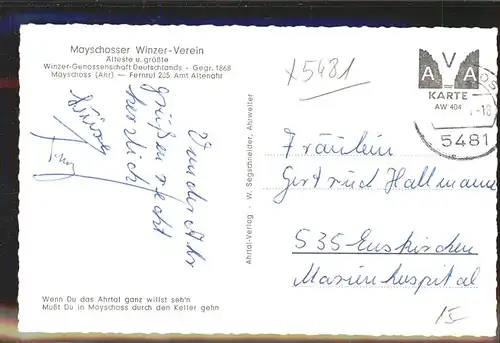 Mayschosser Winzer-Verein
Älteste u. größte
Winzer-Genossenschaft Deutschlands - Gegr. 1868
Mayschoss (Ahr) — Fernruf 205 Amt Altenahr
x5481
A V A
KARTE
AW 404
5481
Von der Ahr
grüßen recht
herzlich
Ahrtal-Verlag · W. Segschneider, Ahrweiler
Fräulein
Gertrud Hallmann
535 Euskirchen
Marienhospital
Wenn Du das Ahrtal ganz willst seh'n
Mußt Du in Mayschoss durch den Keller gehn